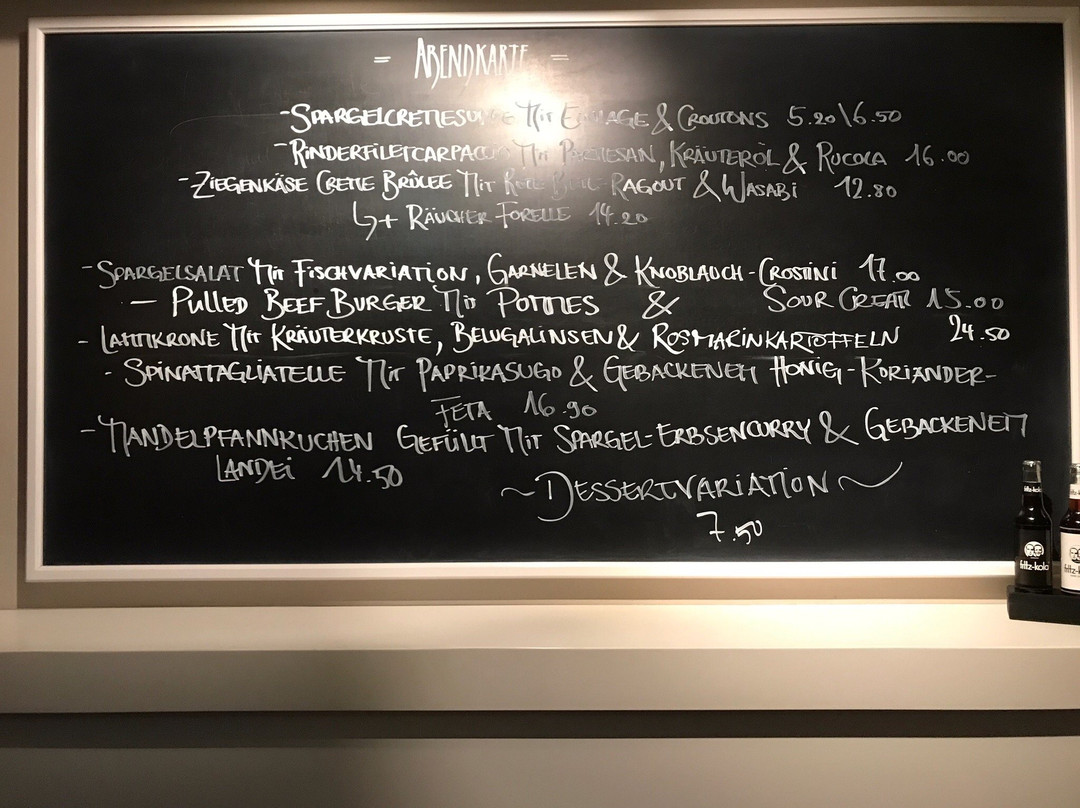 = ABENDKARTE =
- SPARGELCREMESUPPE MIT EINLAGE & CROUTONS 5.20\6.50
- RINDERFILETCARPACCIO MIT PARMESAN, KRÄUTERÖL & RUCOLA 16.00
- ZIEGENKÄSE CREME BRÛLEE MIT ROTE BETE-RAGOUT & WASABI 12.80
↳ + RÄUCHER FORELLE 14.20
- SPARGELSALAT MIT FISCHVARIATION, GARNELEN & KNOBLAUCH-CROSTINI 17.00
- PULLED BEEF BURGER MIT POMMES & SOUR CREAM 15.00
- LAMMKRONE MIT KRÄUTERKRUSTE, BELUGALINSEN & ROSMARINKARTOFFELN 24.50
- SPINATTAGLIATELLE MIT PAPRIKASUGO & GEBACKENEM HONIG-KORIANDER-
FETA 16.90
- MANDELPFANNKUCHEN GEFÜLLT MIT SPARGEL-ERBSENCURRY & GEBACKENEM
LANDEI 14.50
~ DESSERTVARIATION ~
7.50
fritz-kola